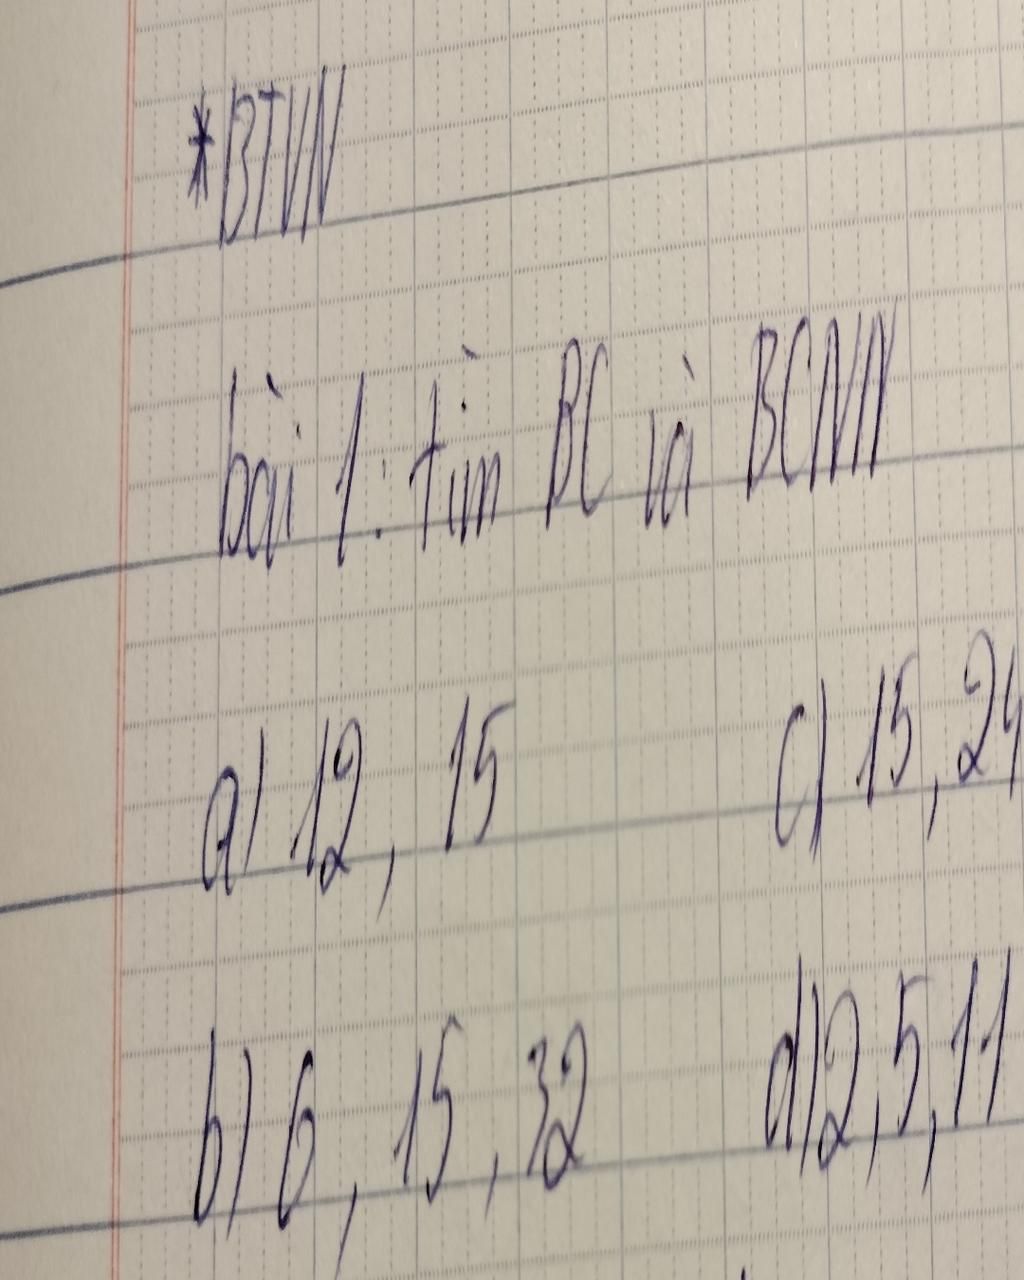 *BTVN
bài 1: tìm BC và BCNN
a) 12, 15 c) 15, 24
b) 6, 15, 32 d) 2, 5, 11